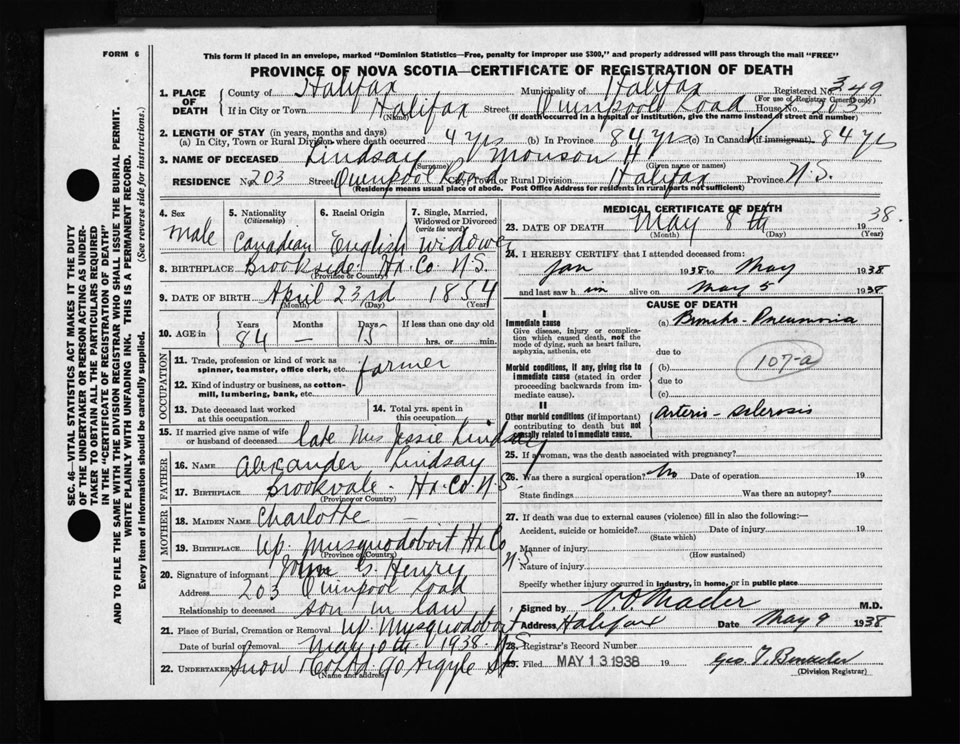 FORM 6
This form if placed in an envelope, marked "Dominion Statistics—Free, penalty for improper use $300," and properly addressed will pass through the mail "FREE"
PROVINCE OF NOVA SCOTIA—CERTIFICATE OF REGISTRATION OF DEATH
1. PLACE OF DEATH
County of Halifax Municipality of Halifax Registered No. 349
(For use of Registrar General only)
If in City or Town Halifax Street Quinpool Road House No. 203
(Name) (If death occurred in a hospital or institution, give the name instead of street and number)
2. LENGTH OF STAY (in years, months and days)
(a) In City, Town or Rural Division where death occurred 4 yrs (b) In Province 84 yrs (c) In Canada (if immigrant) 84 yrs
3. NAME OF DECEASED Lindsay Monson H
(Surname) (Given name or names)
RESIDENCE No. 203 Street Quinpool Road City, Town or Rural Division Halifax Province N.S.
(Residence means usual place of abode. Post Office Address for residents in rural parts not sufficient)
4. Sex 5. Nationality (Citizenship) 6. Racial Origin 7. Single, Married, Widowed or Divorced (write the word)
male Canadian English Widower
8. BIRTHPLACE Brookside Hx. Co. N.S.
(Province or Country)
9. DATE OF BIRTH April 23rd 1854
(Month) (Day) (Year)
10. AGE in Years Months Days If less than one day old
84 — 15 hrs. or min.
OCCUPATION
11. Trade, profession or kind of work as spinner, teamster, office clerk, etc. farmer
12. Kind of industry or business, as cotton-mill, lumbering, bank, etc.
13. Date deceased last worked at this occupation
14. Total yrs. spent in this occupation
15. If married give name of wife or husband of deceased late Mrs Jessie Lindsay
FATHER
16. NAME Alexander Lindsay
17. BIRTHPLACE Brookvale - Hx. Co. N.S.
(Province or Country)
MOTHER
18. MAIDEN NAME Charlotte —
19. BIRTHPLACE Up. Musquodoboit Hx Co N.S
(Province or Country)
20. Signature of informant John G. Henry
Address 203 Quinpool Road
Relationship to deceased son in law
21. Place of Burial, Cremation or Removal Up. Musquodoboit N.S
Date of burial or removal May 10th 1938
22. UNDERTAKER Snow & Co Ltd 90 Argyle St
(Name and address)
MEDICAL CERTIFICATE OF DEATH
23. DATE OF DEATH May 8th 1938.
(Month) (Day) (Year)
24. I HEREBY CERTIFY that I attended deceased from:
Jan 1938 to May 1938
and last saw him alive on May 5 1938
CAUSE OF DEATH
I
Immediate cause
Give disease, injury or complication which caused death, not the mode of dying, such as heart failure, asphyxia, asthenia, etc
(a) Broncho-Pneumonia
due to
(b) 107-a
due to
(c)
Morbid conditions, if any, giving rise to immediate cause (stated in order proceeding backwards from immediate cause).
II
Other morbid conditions (if important) contributing to death but not causally related to immediate cause.
Arterio-sclerosis
25. If a woman, was the death associated with pregnancy?
26. Was there a surgical operation? No Date of operation 19
State findings Was there an autopsy?
27. If death was due to external causes (violence) fill in also the following:—
Accident, suicide or homicide? Date of injury 19
(State which)
Manner of injury
(How sustained)
Nature of injury
Specify whether injury occurred in industry, in home, or in public place
Signed by M.D.
Address Halifax Date May 9 1938
28. Registrar's Record Number
29. Filed MAY 13 1938 19
(Division Registrar)
SEC. 46—VITAL STATISTICS ACT MAKES IT THE DUTY OF THE UNDERTAKER OR PERSON ACTING AS UNDERTAKER TO OBTAIN ALL THE PARTICULARS REQUIRED IN THE "CERTIFICATE OF REGISTRATION OF DEATH" AND TO FILE THE SAME WITH THE DIVISION REGISTRAR WHO SHALL ISSUE THE BURIAL PERMIT.
WRITE PLAINLY WITH UNFADING INK. THIS IS A PERMANENT RECORD.
Every item of information should be carefully supplied. (See reverse side for instructions.)